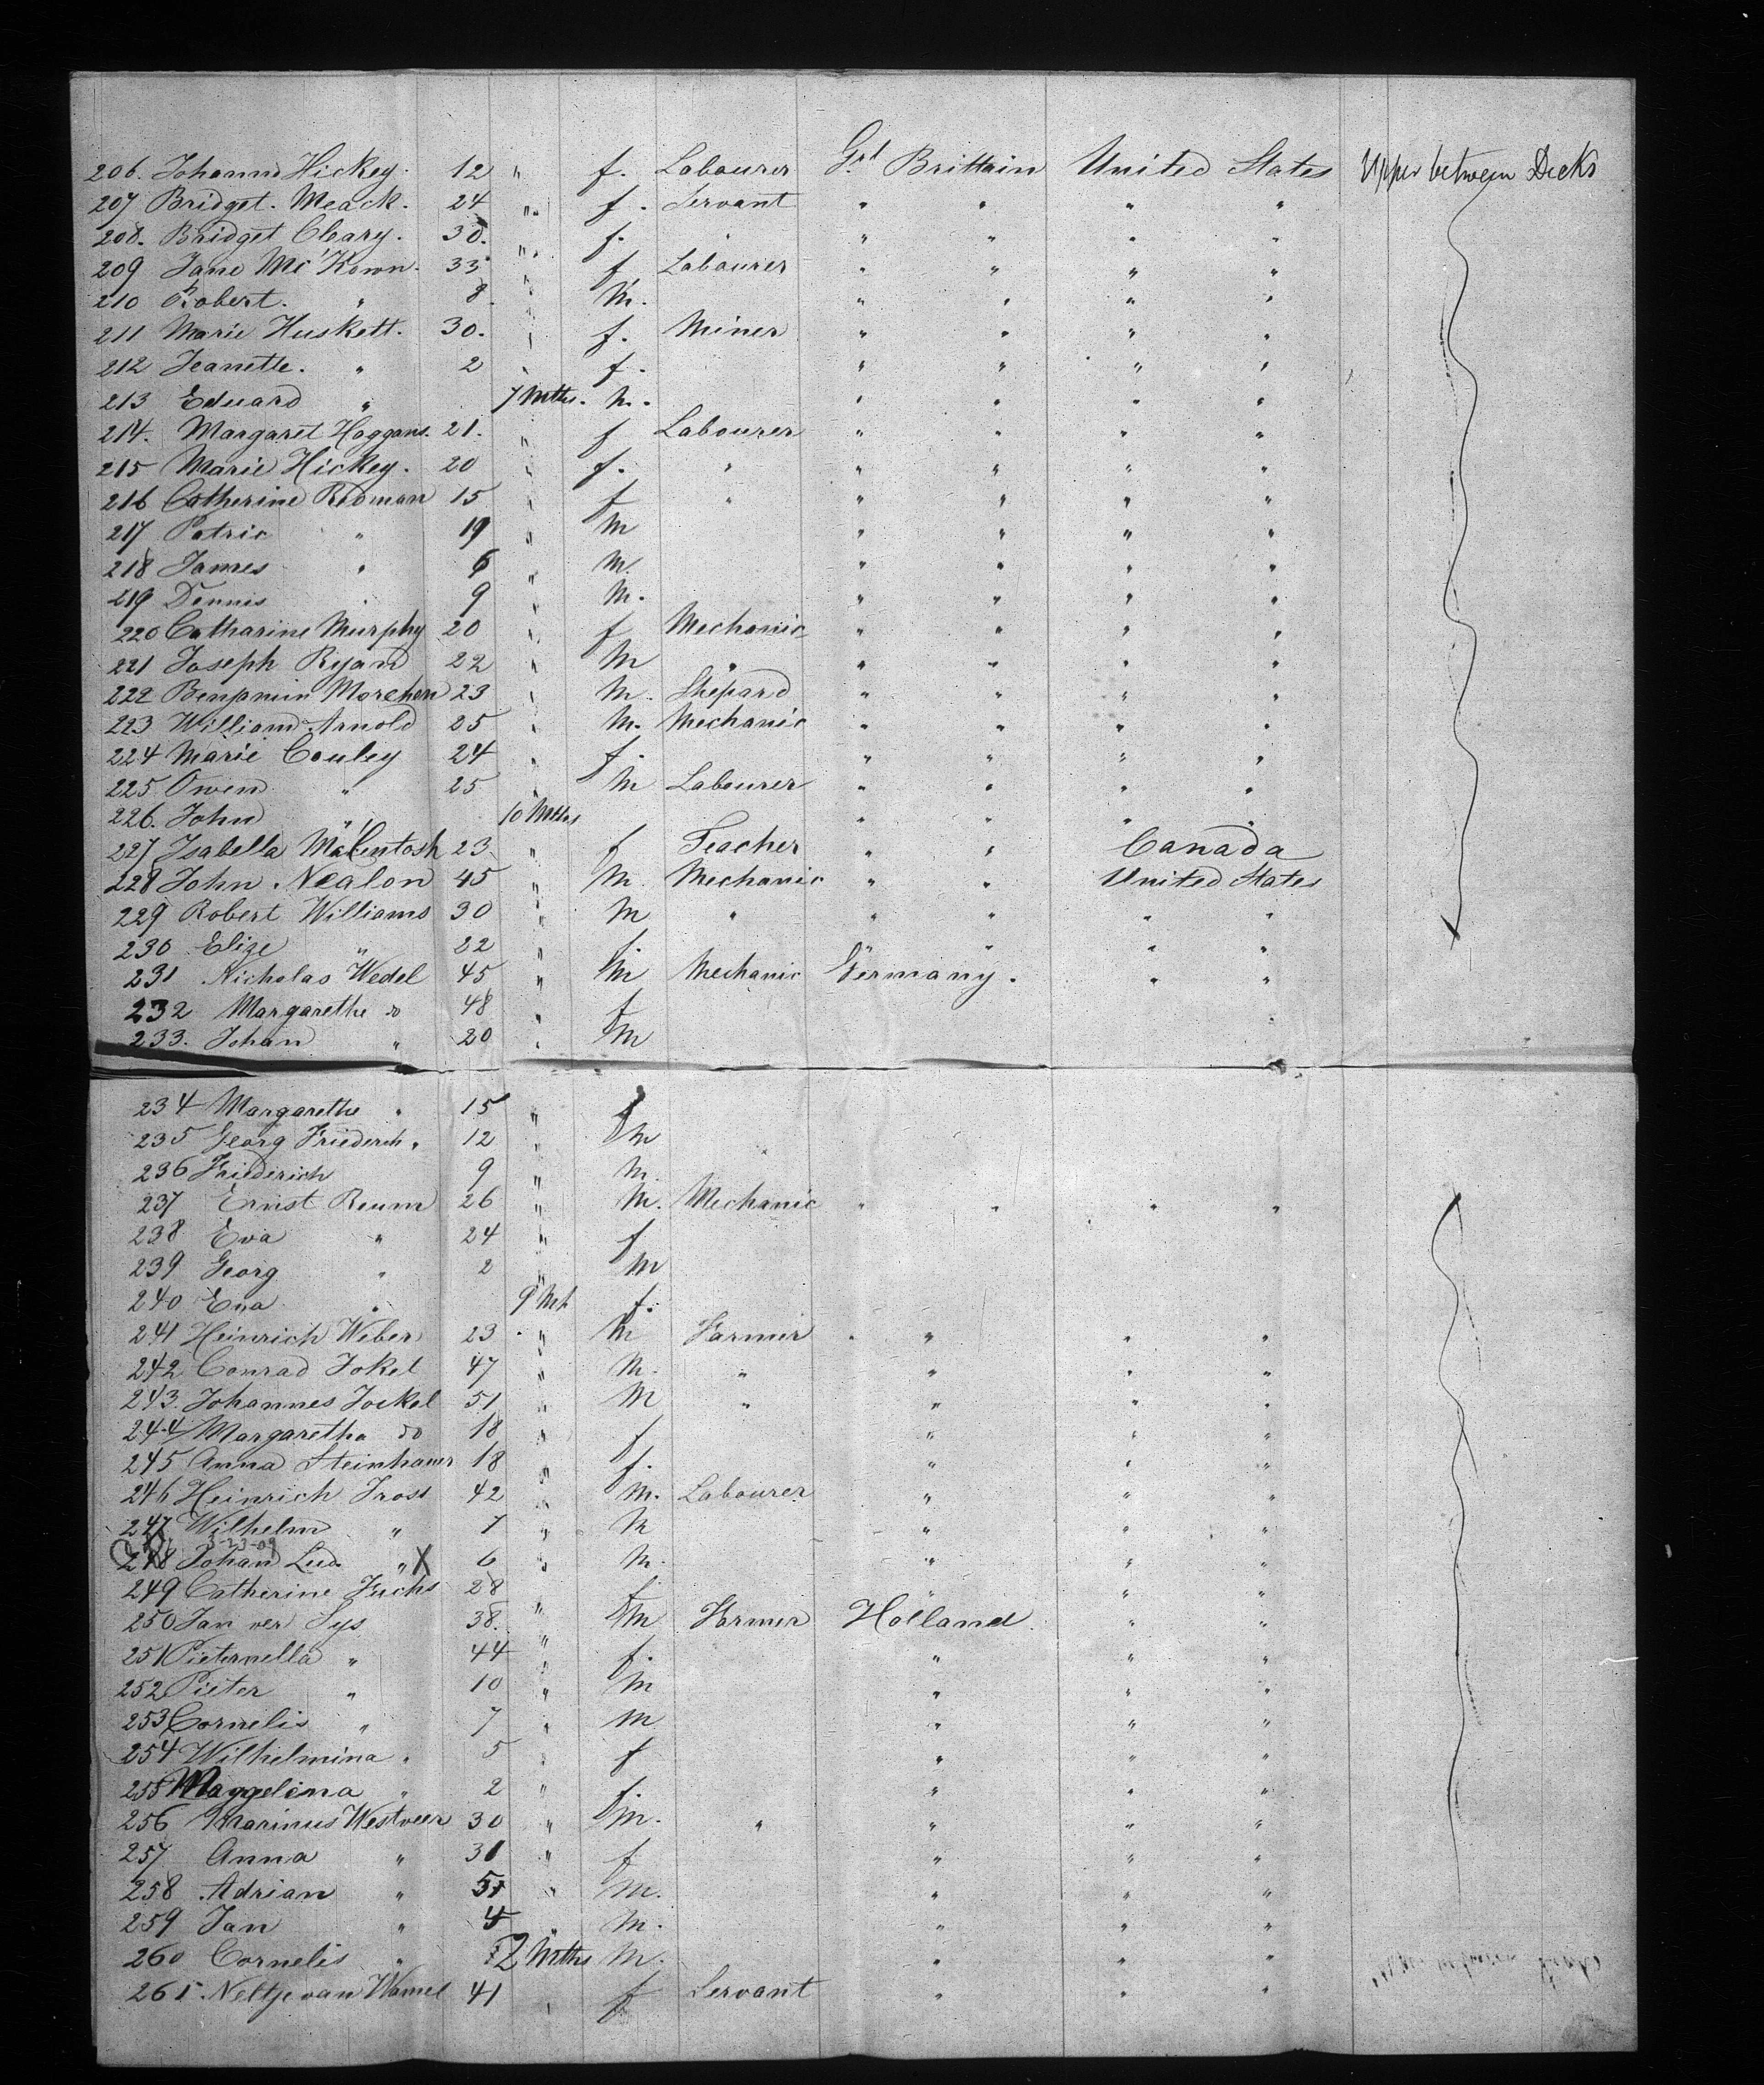 206. Johanna Hickey. 12 " f. Labourer Grt Brittain United States Upper between Decks
207 Bridget. Meack. 24 " f. Servant " " " "
208. Bridget Cleary. 30. " f. " " " " "
209 Jane Mc'Kown. 33 " f Labourer " " " "
210 Robert. " 8. " M. " " " "
211 Marie Huskett. 30. " f. Miner " " " "
212 Jeanette. " 2 " f. " " " "
213 Eduard " 7 Mths. M. " " " "
214. Margaret Haggans. 21. " f Labourer " " " "
215 Marie Hickey. 20 " f. " " " " "
216 Catherine Redman 15 " f " " " " "
217 Patric " 19 " M " " " "
218 James " 6 " M. " " " "
219 Dennis " 9 " M. " " " "
220 Catharine Murphy 20 " f Mechanic " " " "
221 Joseph Ryand 22 " M " " " " "
222 Benjamin Morchen 23 " M. Shepard " " " "
223 William Arnold 25 " M. Mechanic " " " "
224 Marie Couley 24 " f. " " " "
225 Owen " 25 " M Labourer " " " "
226. John " 10 Mths " " " "
227 Isabella McCentosh 23 " f Teacher " " Canada
228 John Nealon 45 " M. Mechanic " " United States
229 Robert Williams 30 " M " " " " "
230 Elize " 22 " f. " " " "
231 Nicholas Wedel 45 " M Mechanic Germany. " "
232 Margarethe do 48 " f
233. Johan " 20 " M
234 Margarethe " 15 " f
235 Georg Friederich " 12 " M
236 Friederich 9 " M
237 Ernst Reum 26 " M. Mechanic " " " "
238 Eva " 24 " f
239 Georg " 2 " M
240 Eva " 9 Mt f.
241 Heinrich Weber 23 " M Farmer " " " "
242 Conrad Jokel 47 " M. " " " "
243. Johannes Jockel 51 " M " " " "
244 Margaretha do 18 " f " " "
245 Anna Steinhauer 18 " f. " " "
246 Heinrich Trost 42 " M. Labourer " " "
247 Wilhelm " 7 " M " " "
3-23-09
248 Johan Lud. " X 6 " M. " " "
249 Catherine Fuchs 28 " f " " "
250 Jan ver Sys 38. " M Farmer Holland " "
251 Pieternella " 44 " f. " " "
252 Pieter " 10 " M " " "
253 Cornelis " 7 " M " " "
254 Wilhelmina " 5 " f " " "
255 Maggelina " 2 " f. " " "
256 Marinus Westveer 30 " M. " " " "
257 Anna " 31 " f " " "
258 Adrian " 5 " M. " " "
259 Jan " 4 " M. " " "
260 Cornelis " 2 Mths M. " " "
261. Neltje van Wamel 41 " f Servant " " "